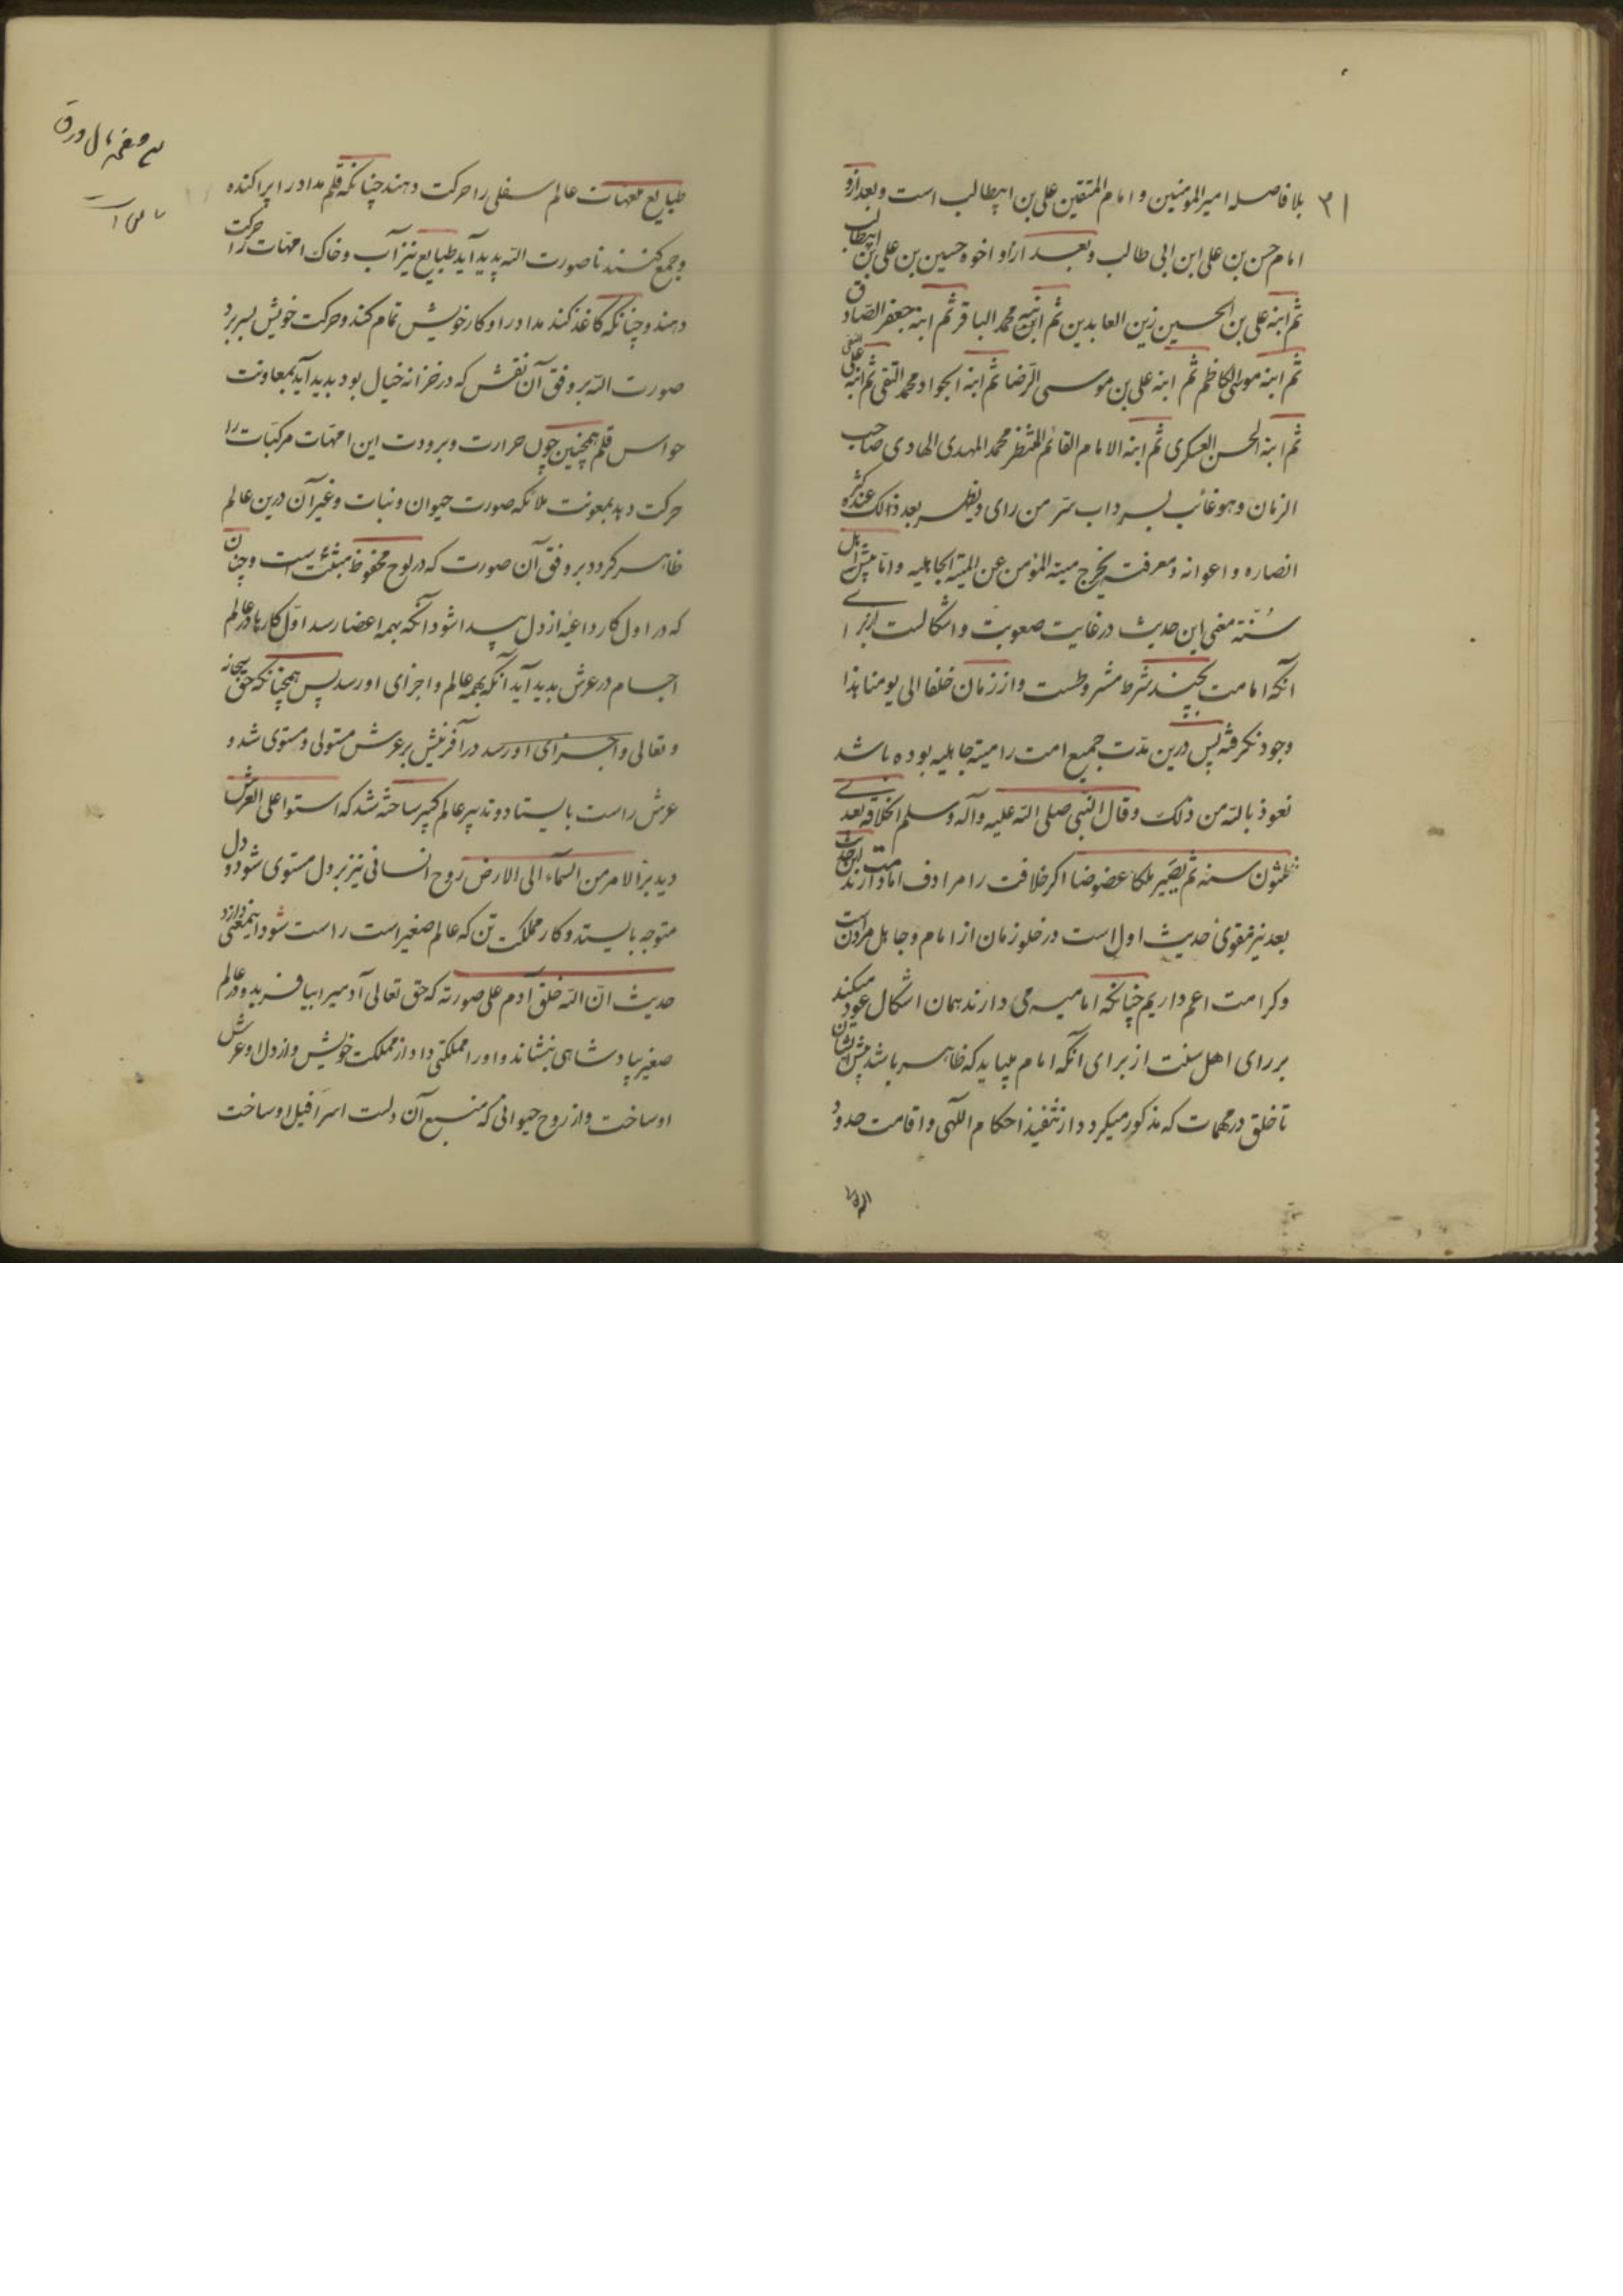 ۳۱
بلا فاصله امیر المومنین و امام المتقین علی بن ابیطالب است و بعد ازو
امام حسن بن علی ابن ابی طالب و بعد ازاو اخوه حسین بن علی بن ابیطالب
ثم ابنه علی بن الحسین زین العابدین ثم ابنه محمد الباقر ثم ابنه جعفر الصادق
ثم ابنه موسی الکاظم ثم ابنه علی بن موسی الرضا ثم ابنه الجواد محمد التقی ثم ابنه علی النقی
ثم ابنه الحسن العسکری ثم ابنه الامام القائم المنتظر محمد المهدی الهادی صاحب
الزمان و هو غائب بسرداب سر من رای و یظهر بعد ذالک عند کثره
انصاره و اعوانه و معرفته یخرج میته المؤمن عن المیتة الجاهلیه و اما پیش اهل
سُنّة معنی این حدیث در غایت صعوبت و اشکالست از برای
آنکه امامت بچند شرط مشروطست و از زمان خلفا الی یومنا هذا
وجود نکرفته پس درین مدت جمیع امت را میتة جاهلیه بوده باشد
نعوذ بالله من ذلک و قال النبی صلی الله علیه و آله و سلم الخلافة بعدی
ثلثون سنه ثم یصیر ملکا عضوضا اکر خلافت را مرادف امامت دارند این حدیث
بعد نیز مقوی حدیث اول است در خلو زمان از امام و جاهل مردن است
و کر امامت اعم داریم چنانکه امامیه می دارند همان اشکال عود میکند
بر رای اهل سنت از برای آنکه امام میباید که ظاهر باشد پیش ایشان
تا خلق در مهمات که مذکور میکردد از تنفیذ احکام اللهی و اقامت حدود
طبایع مهمات عالم سفلی را حرکت دهند چنانکه قلم مداد را پراکنده
و جمع کنند تا صورت الله پدید آید طبایع نیز آب و خاک امّهات را حرکت
دهند و چنانکه کاغذ کند مداد را و کار خویش تمام کند و حرکت خویش بسر برد
صورت الله بر وفق آن نقش که در خزانه خیال بود پدید آید بمعاونت
حواس قلم همچنین چون حرارت و برودت این امّهات مرکبات را
حرکت دهد بمعونت ملائکه صورت حیوان و نبات و غیر آن درین عالم
ظاهر کردد بر وفق آن صورت که در لوح محفوظ مثبت است و چنان
که در اول کار داعیه از دل پیدا شود آنکه بهمه اعضا رسد اوّل کارها در عالم
اجسام در عرش پدید آید آنکه بهمه عالم و اجزای او رسد پس همچنانکه حق سبحانه
و تعالی و اجزای او رسد در آفرینش بر عرش مستولی و مستوی شد و
عرش راست بایستاد و تدبیر عالم کبیر ساخته شد که استوا علی العرش
یدبر الامر من السماء الی الارض روح انسانی نیز بر دل مستوی شود و دل
متوجه بایستد و کار مملکت تن که عالم صغیر است راست شود اینمعنی دارد
حدیث انّ الله خلق آدم علی صورته که حق تعالی آدمیرا بیافرید و در عالم
صغیر بپادشاهی بنشاند و او را مملکتی داد از مملکت خویش و از دل او عرش
او ساخت و از روح حیوانی که منبع آن دلست اسرافیل او ساخت